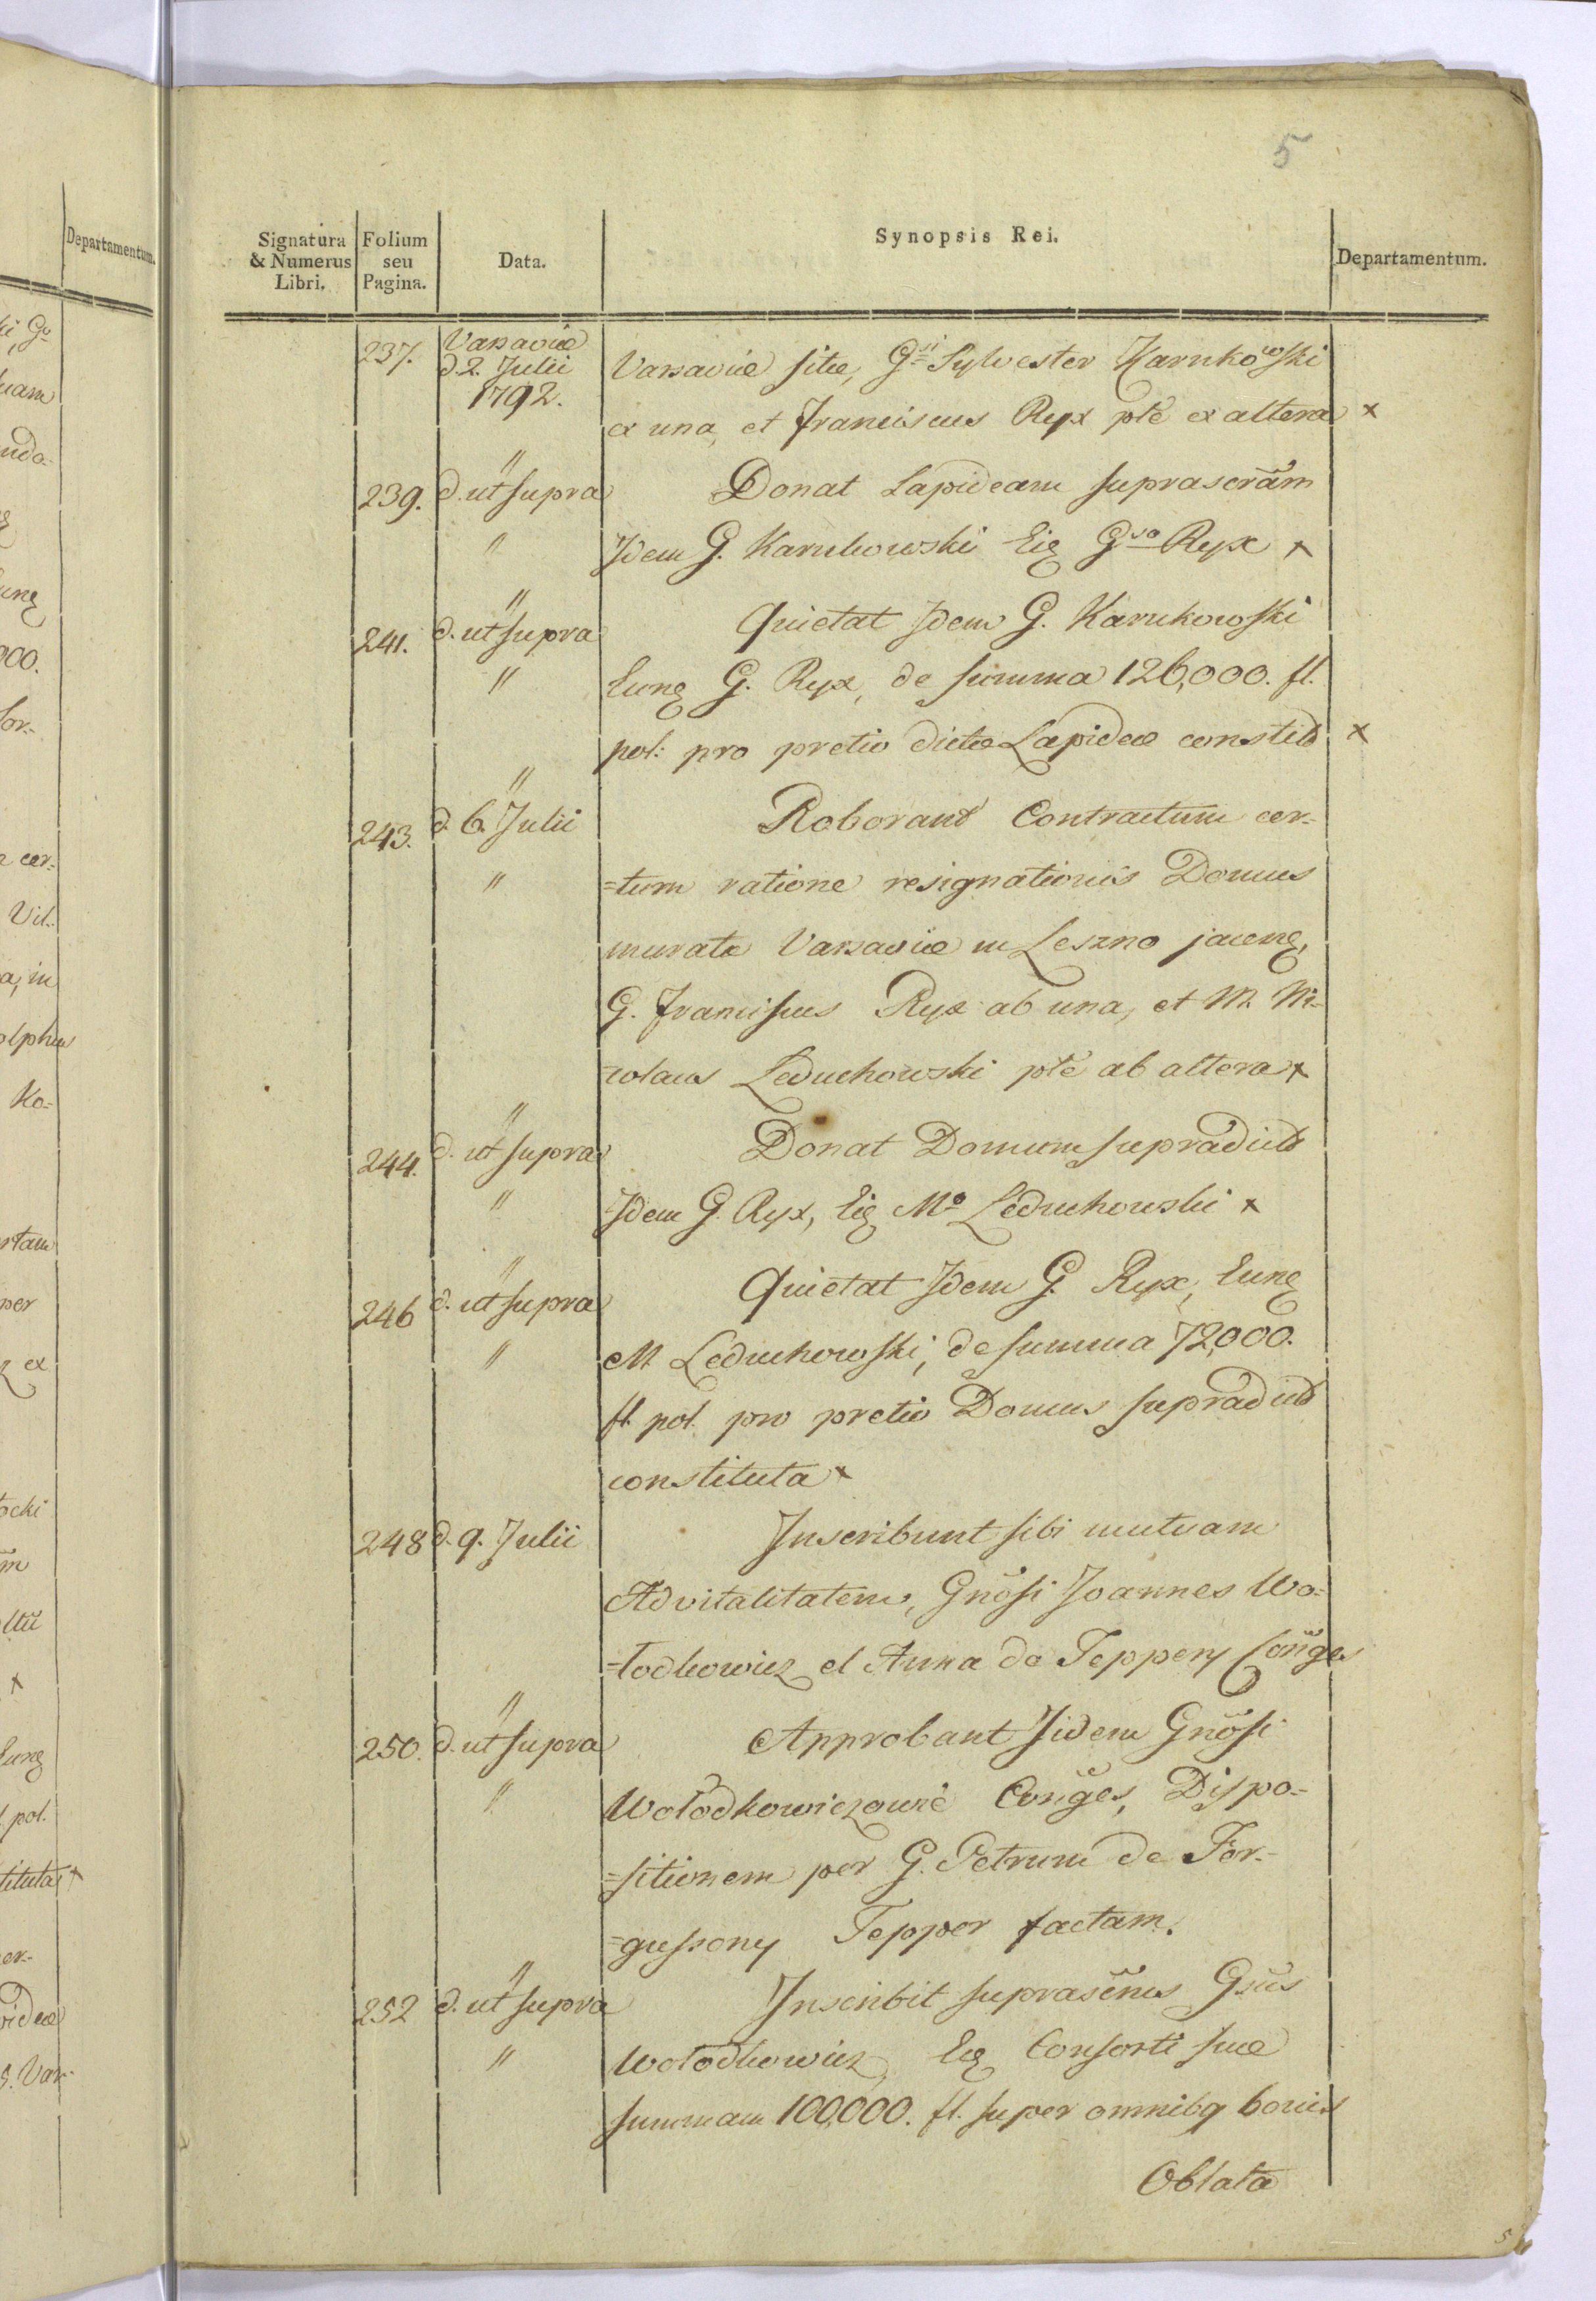 5
Departamentum.
Signatura & Numerus Libri.
Folium seu Pagina.
Data.
Synopsis Rei.
Departamentum.
237. Varsaviæ d. 2. Julii 1792. Varsaviæ sitæ, Gsi Sylvester Karnkowski
ex una, et Franciscus Ryx pte ex altera x
239. d. ut supra Donat Lapideam suprascram
" Idem G. Karnkowski Eiq Gso Ryx x
241. d. ut supra Quietat Idem G. Karnkowski
" Eunq G. Ryx, de summa 126,000. fl.
pol: pro pretio dictæ Lapideæ constit x
243. d. 6. Julii Roborant Contractum cer-
" =tum ratione resignationis Domus
muratæ Varsaviæ in Leszno jacenq,
G. Franciscus Ryx ab una, et M. Ni-
=colaus Leduchowski pte ab altera x
244. d. ut supra Donat Domum supradict
" Idem G. Ryx, Eiq Mo Leduchowski x
246 d. ut supra Quietat Idem G. Ryx, Eunq
" M. Leduchowski, de summa 72,000.
fl. pol. pro pretio Domus supradict
constituta x
248 d. 9. Julii Inscribunt sibi mutuam
Advitalitatem, Gnosi Joannes Wo-
=łodkowicz et Anna de Teppery Conges
250. d. ut supra Approbant Iidem Gnosi
" Wołodkowiczowie Conges, Dispo-
=sitionem per G. Petrum de Fer-
=gussony Tepper factam.
252 d. ut supra Inscribit suprascnus Gsus
" Wołodkowicz, Eiq Consorti suæ
summam 100,000. fl. super omnibq bonis
Oblata
5